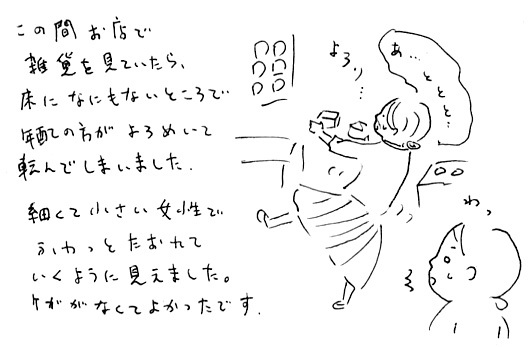 この間お店で
雑貨を見ていたら、
床になにもないところで
年配の方がよろめいて
転んでしまいました.
細くて小さい女性で
ふわっとたおれて
いくように見えました。
ケガがなくてよかったです.
よろッ…
あ…ととと…
わっ